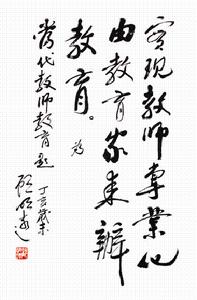 实现教师专业化
由教育家来办
教育。
为
当代教师教育题
丁亥岁末
顾明远